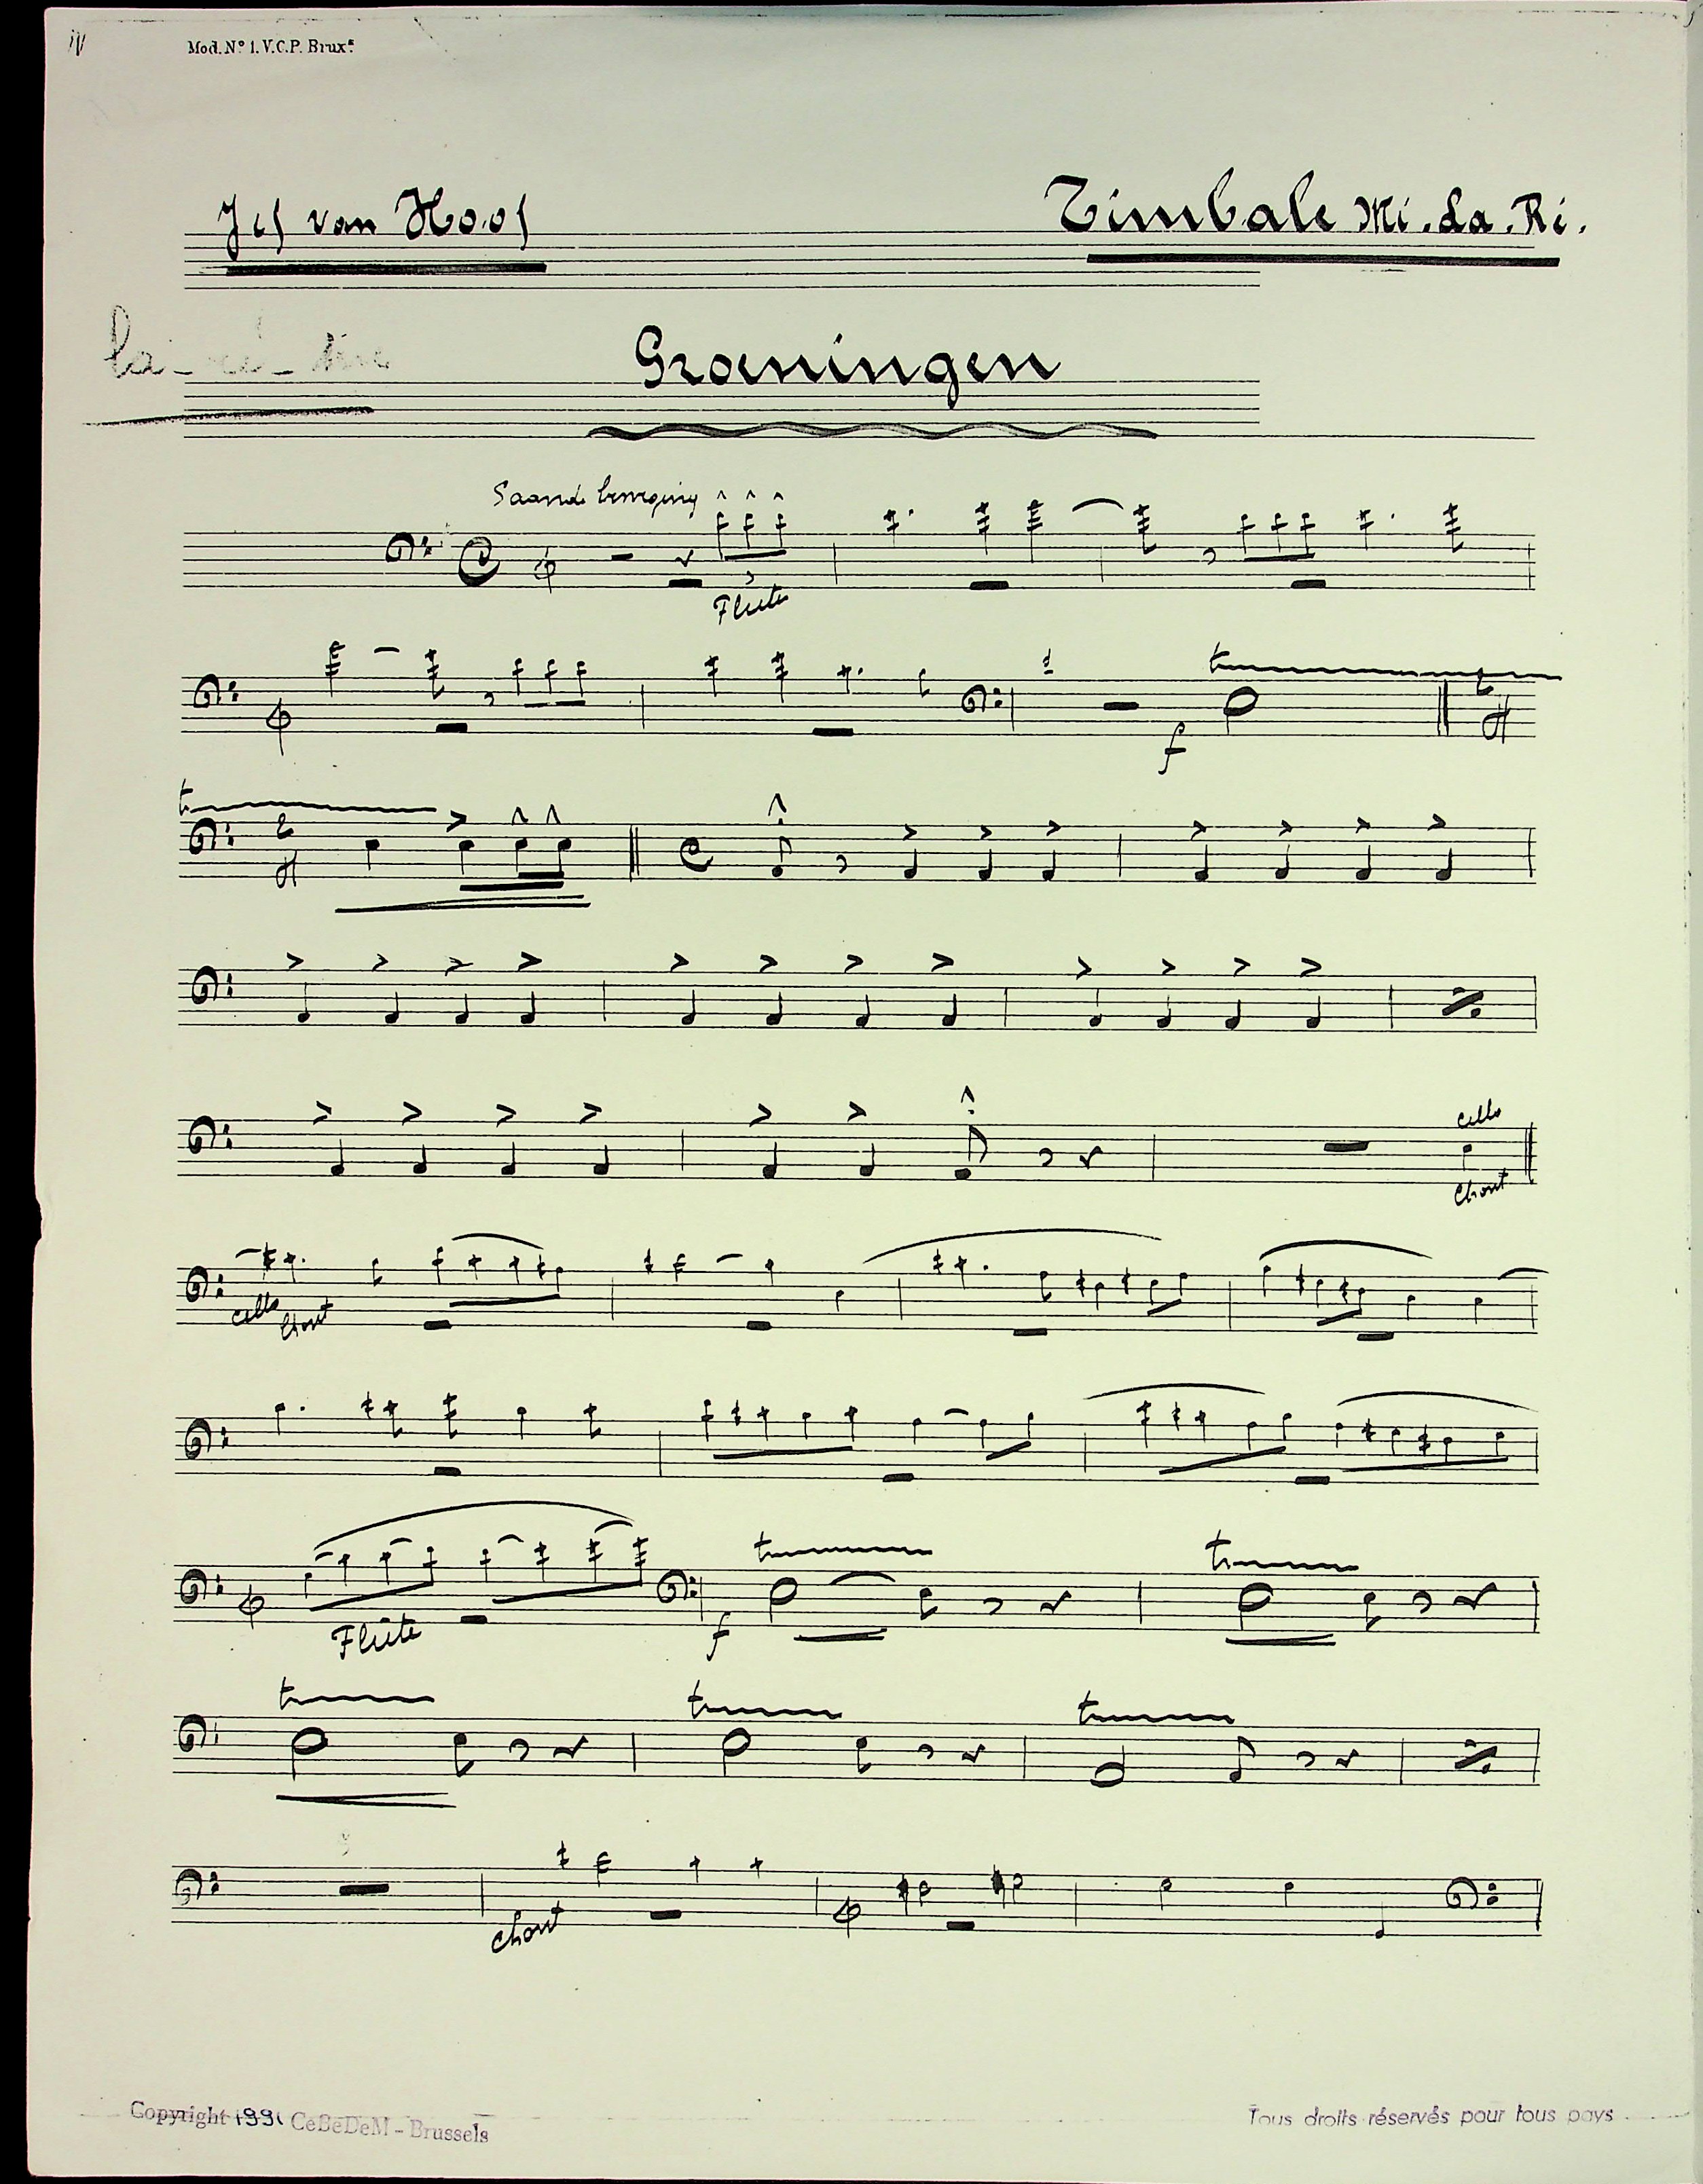 Mod. Nº 1. V.C.P. Brux.
Jef van Hoof
Timbale Mi. La. Ré.
la - ré - mi
Groeningen
Flûte
f
cello
chant
cello chant
Flûte
f
chant
Copyright 1991 CeBeDeM - Brussels
Tous droits réservés pour tous pays